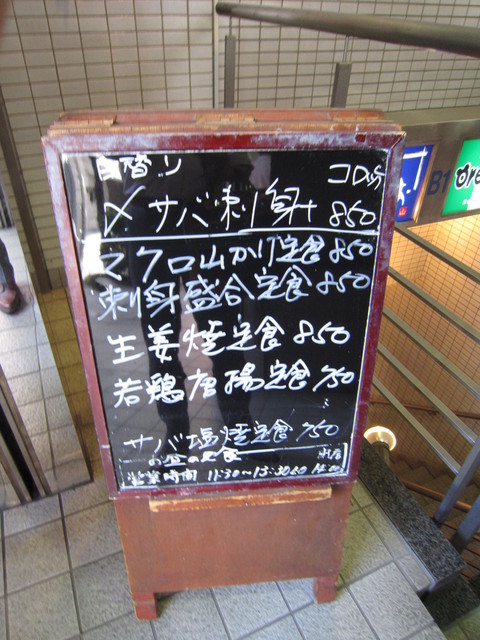 日替り
〆サバ刺身 850
マグロ山かけ定食 850
刺身盛合定食 850
生姜焼定食 850
若鶏唐揚定食 750
サバ塩焼定食 750
お昼の定食
営業時間 11:30~13:30
B1